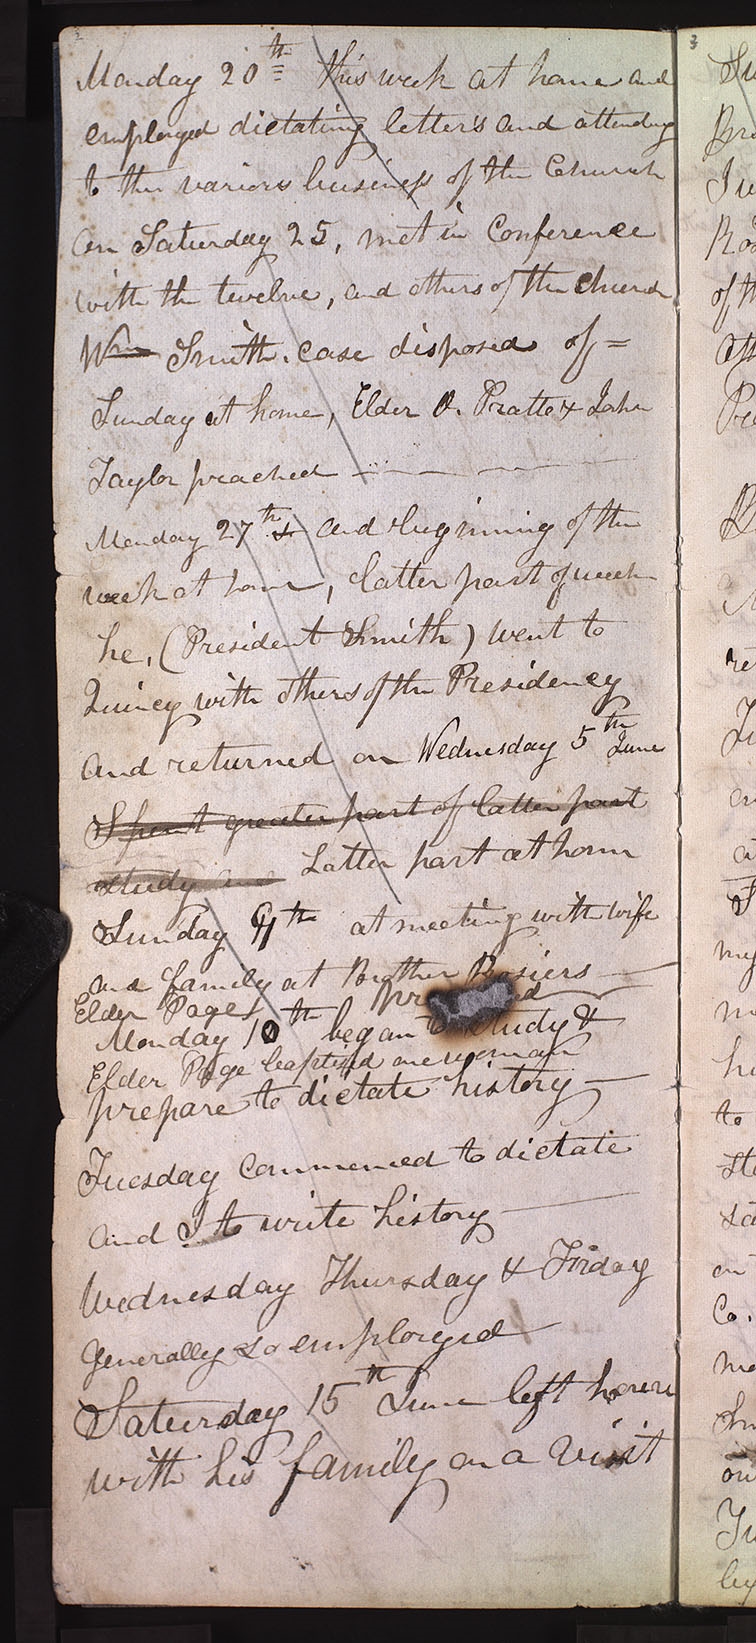 Monday 20th this week at home and
employed dictating letters and attending
to the various business of the Church
On Saturday 25, met in Conference
with the twelve, and others of the church
Wm Smith. case disposed of =
Sunday at home, Elder O. Pratt & John
Taylor preached
Monday 27th & and beginning of the
week at home, latter part of week
he, (President Smith) went to
Quincy with others of the Presidency
and returned on Wednesday 5th June
Spent greater part of latter part
study and Latter part at home
Sunday 9th at meeting with wife
and family at Brother Bosiers
Elder Page
Monday 10th began to study &
Elder Page baptised one woman
prepare to dictate history
Tuesday commenced to dictate
and I to write history
Wednesday Thursday & Friday
generally so employed
Saturday 15th June left home
with his family on a visit
3
of th
Co.
to